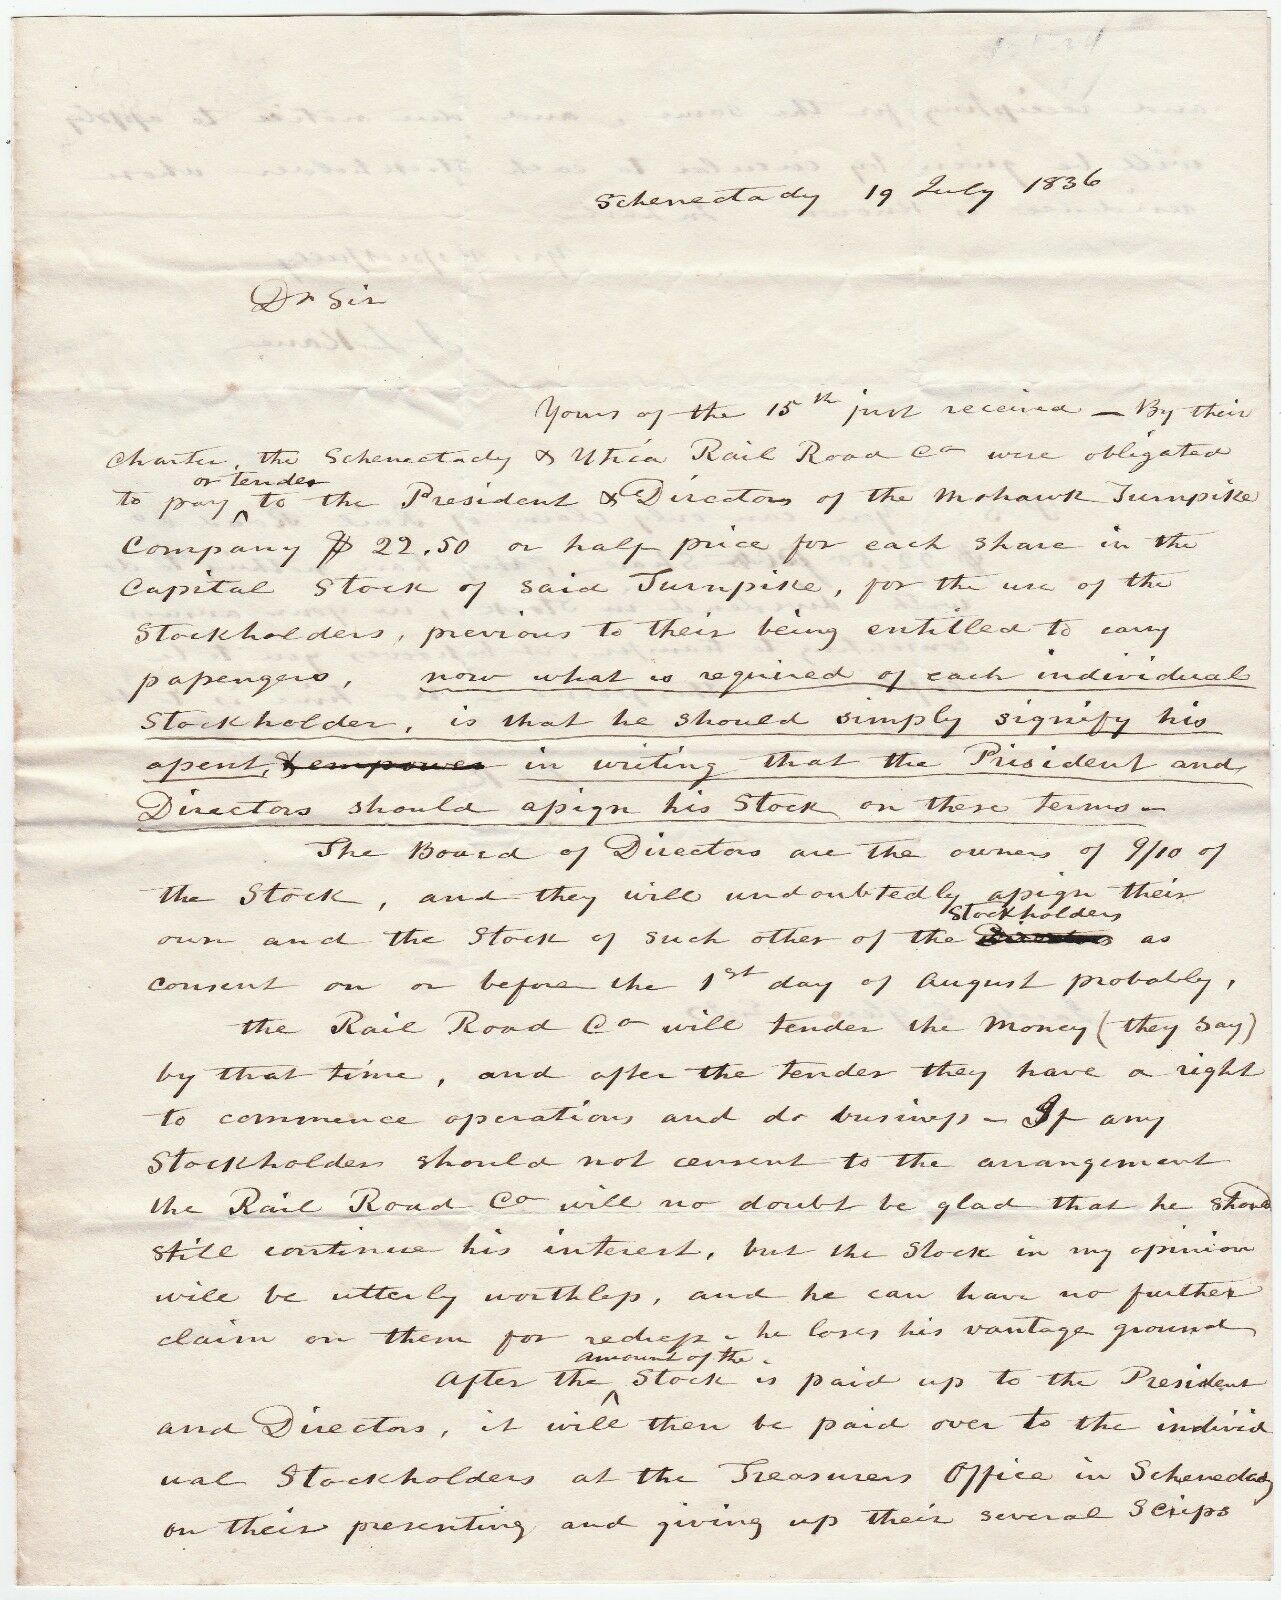 Schenectady 19 July 1836
Dr Sir
Yours of the 15th just received — By their
charter, the Schenectady & Utica Rail Road Co were obligated
or tender
to pay ^ to the President & Directors of the Mohawk Turnpike
Company $22.50 or half price for each share in the
Capital Stock of said Turnpike, for the use of the
Stockholders, previous to their being entitled to carry
passengers, now what is required of each individual
Stockholder, is that he should simply signify his
assent, & empower in writing that the President and
Directors should assign his Stock on these terms —
The Board of Directors are the owners of 9/10 of
the Stock, and they will undoubtedly assign their
Stockholders
own and the Stock of such other of the Directors as
consent on or before the 1st day of August probably,
the Rail Road Co will tender the Money (they say)
by that time, and after the tender they have a right
to commence operations and do business — If any
Stockholders should not consent to the arrangement
the Rail Road Co will no doubt be glad that he should
still continue his interest, but the Stock in my opinion
will be utterly worthless, and he can have no further
claim on them for redress — he loses his vantage ground
amount of the
After the ^ Stock is paid up to the President
and Directors, it will then be paid over to the individ
ual Stockholders at the Treasurers Office in Schenectady
on their presenting and giving up their several Scrips